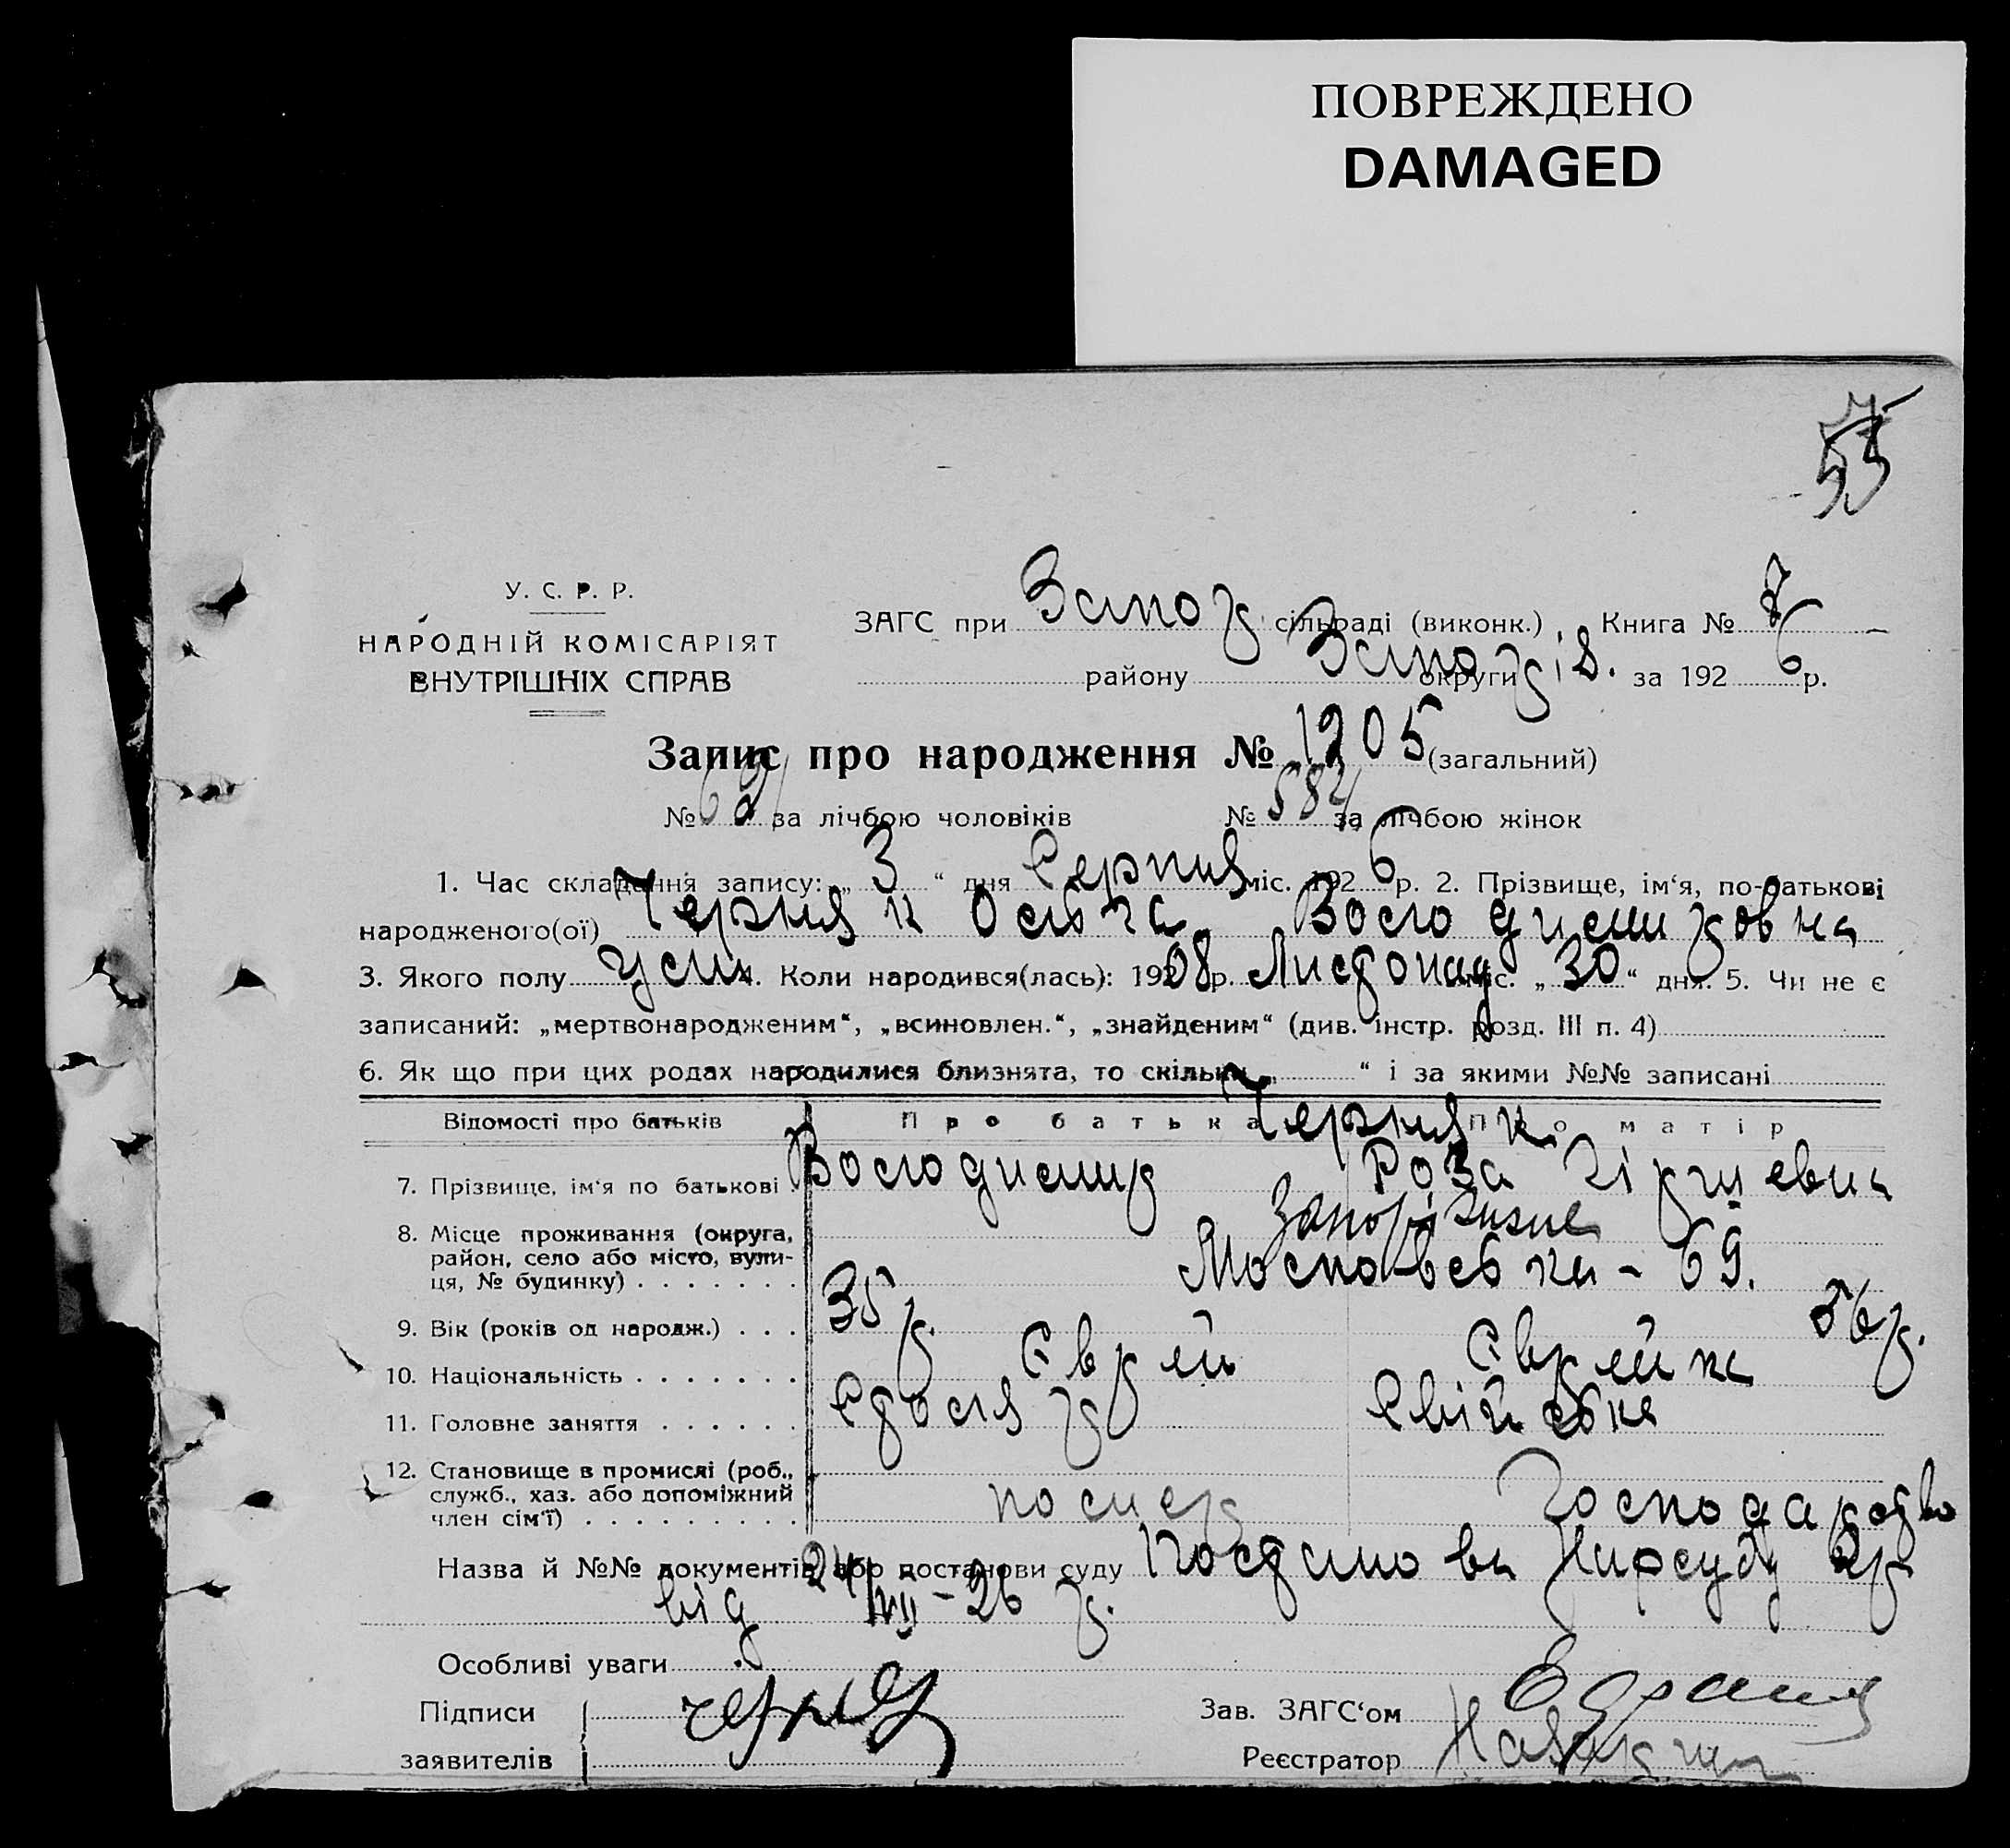 ПОВРЕЖДЕНО
DAMAGED
55
У. С. Р. Р.
НАРОДНІЙ КОМІСАРІЯТ
ВНУТРІШНІХ СПРАВ
ЗАГС при Запор сільраді (виконк.) Книга №
району Запоріз. округи за 192 6 р.
Запис про народження № 1205 (загальний)
№ 621 за лічбою чоловіків № 584 за лічбою жінок
1. Час складання запису: „ 3 “ дня Серпня міс. 192 6 р. 2. Прізвище, ім‘я, по-батькові
народженого(ої) Черняк Ольга Володимировна
3. Якого полу жін 4. Коли народився(лась): 1908 р. Листопад міс. „ 30 “ дня. 5. Чи не є
записаний: „мертвонародженим“, „всиновлен.“, „знайденим“ (див. інстр. розд. III п. 4)
6. Як що при цих родах народилися близнята, то скільки „ “ і за якими №№ записані
Відомості про батьків Про батька Про матір
Черняк
7. Прізвище, ім‘я по батькові Володимир Роза
8. Місце проживання (округа, район, село або місто, вули-ця, № будинку) Запоріжжя
Московська - 69.
9. Вік (років од народж.) 35 р. 36 р.
10. Національність Єврей Єврейка
11. Головне заняття Столяр Свійська
12. Становище в промислі (роб., служб., хаз. або допоміжний член сім‘ї) Господарство
Назва й №№ документів або постанови суду Постанова Нарсуду 2 р
від 24/VII - 26 р.
Особливі уваги
Підписи
заявителів
Зав. ЗАГС‘ом
Реєстратор